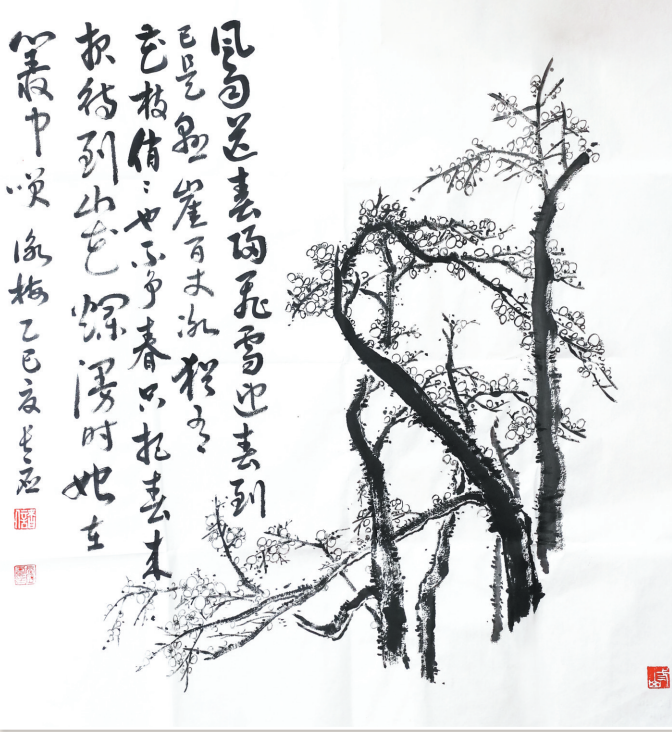 風雨送春歸飛雪迎春到
已是懸崖百丈冰猶有
花枝俏〻也不争春只把春来
報待到山花爛漫时她在
叢中咲 詠梅 乙巳夏